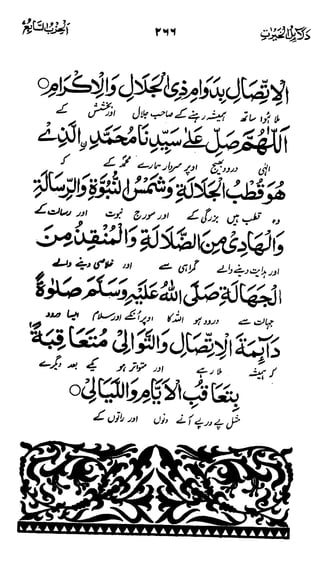 دلائل الخیرات ۲۶۶ الحزب السابع
الْاِتِّصَالِ بِدَوَامِ ذِی الْجَلَالِ وَالْاِکْرَامِ ○
ملا ہوا ساتھ ہمیشہ رہنے صاحب جلال اور بخشش کے
اَللّٰهُمَّ صَلِّ عَلٰی سَیِّدِنَا مُحَمَّدِ الَّذِیْ
الٰہی درود بھیج اوپر سردار ہمارے محمد کے کہ
هُوَ قُطْبُ الْجَلَالَةِ وَشَمْسُ النُّبُوَّةِ وَالرِّسَالَةِ
وہ قطب ہیں بزرگی کے اور سورج نبوت اور رسالت کے
وَالْهَادِیْ مِنَ الضَّلَالَةِ وَالْمُنْقِذُ مِنَ
اور ہدایت دینے والے گمراہی سے اور خلاصی دینے والے
الْجَهَالَةِ صَلَّی اللّٰهُ عَلَیْهِ وَسَلَّمَ صَلٰوةً
جہالت سے درود ہو اللہ کا اوپر انکے اور سلام ایسا درود
دَآئِمَةَ الْاِتِّصَالِ وَالتَّوَالِیْ مُتَعَاقِبَةً
کہ ہمیشہ ملا رہے اور متواتر ہو یکے بعد دیگرے
بِتَعَاقُبِ الْاَیَّامِ وَاللَّیَالِیْ ○
پے در پے آنے دنوں اور راتوں کے